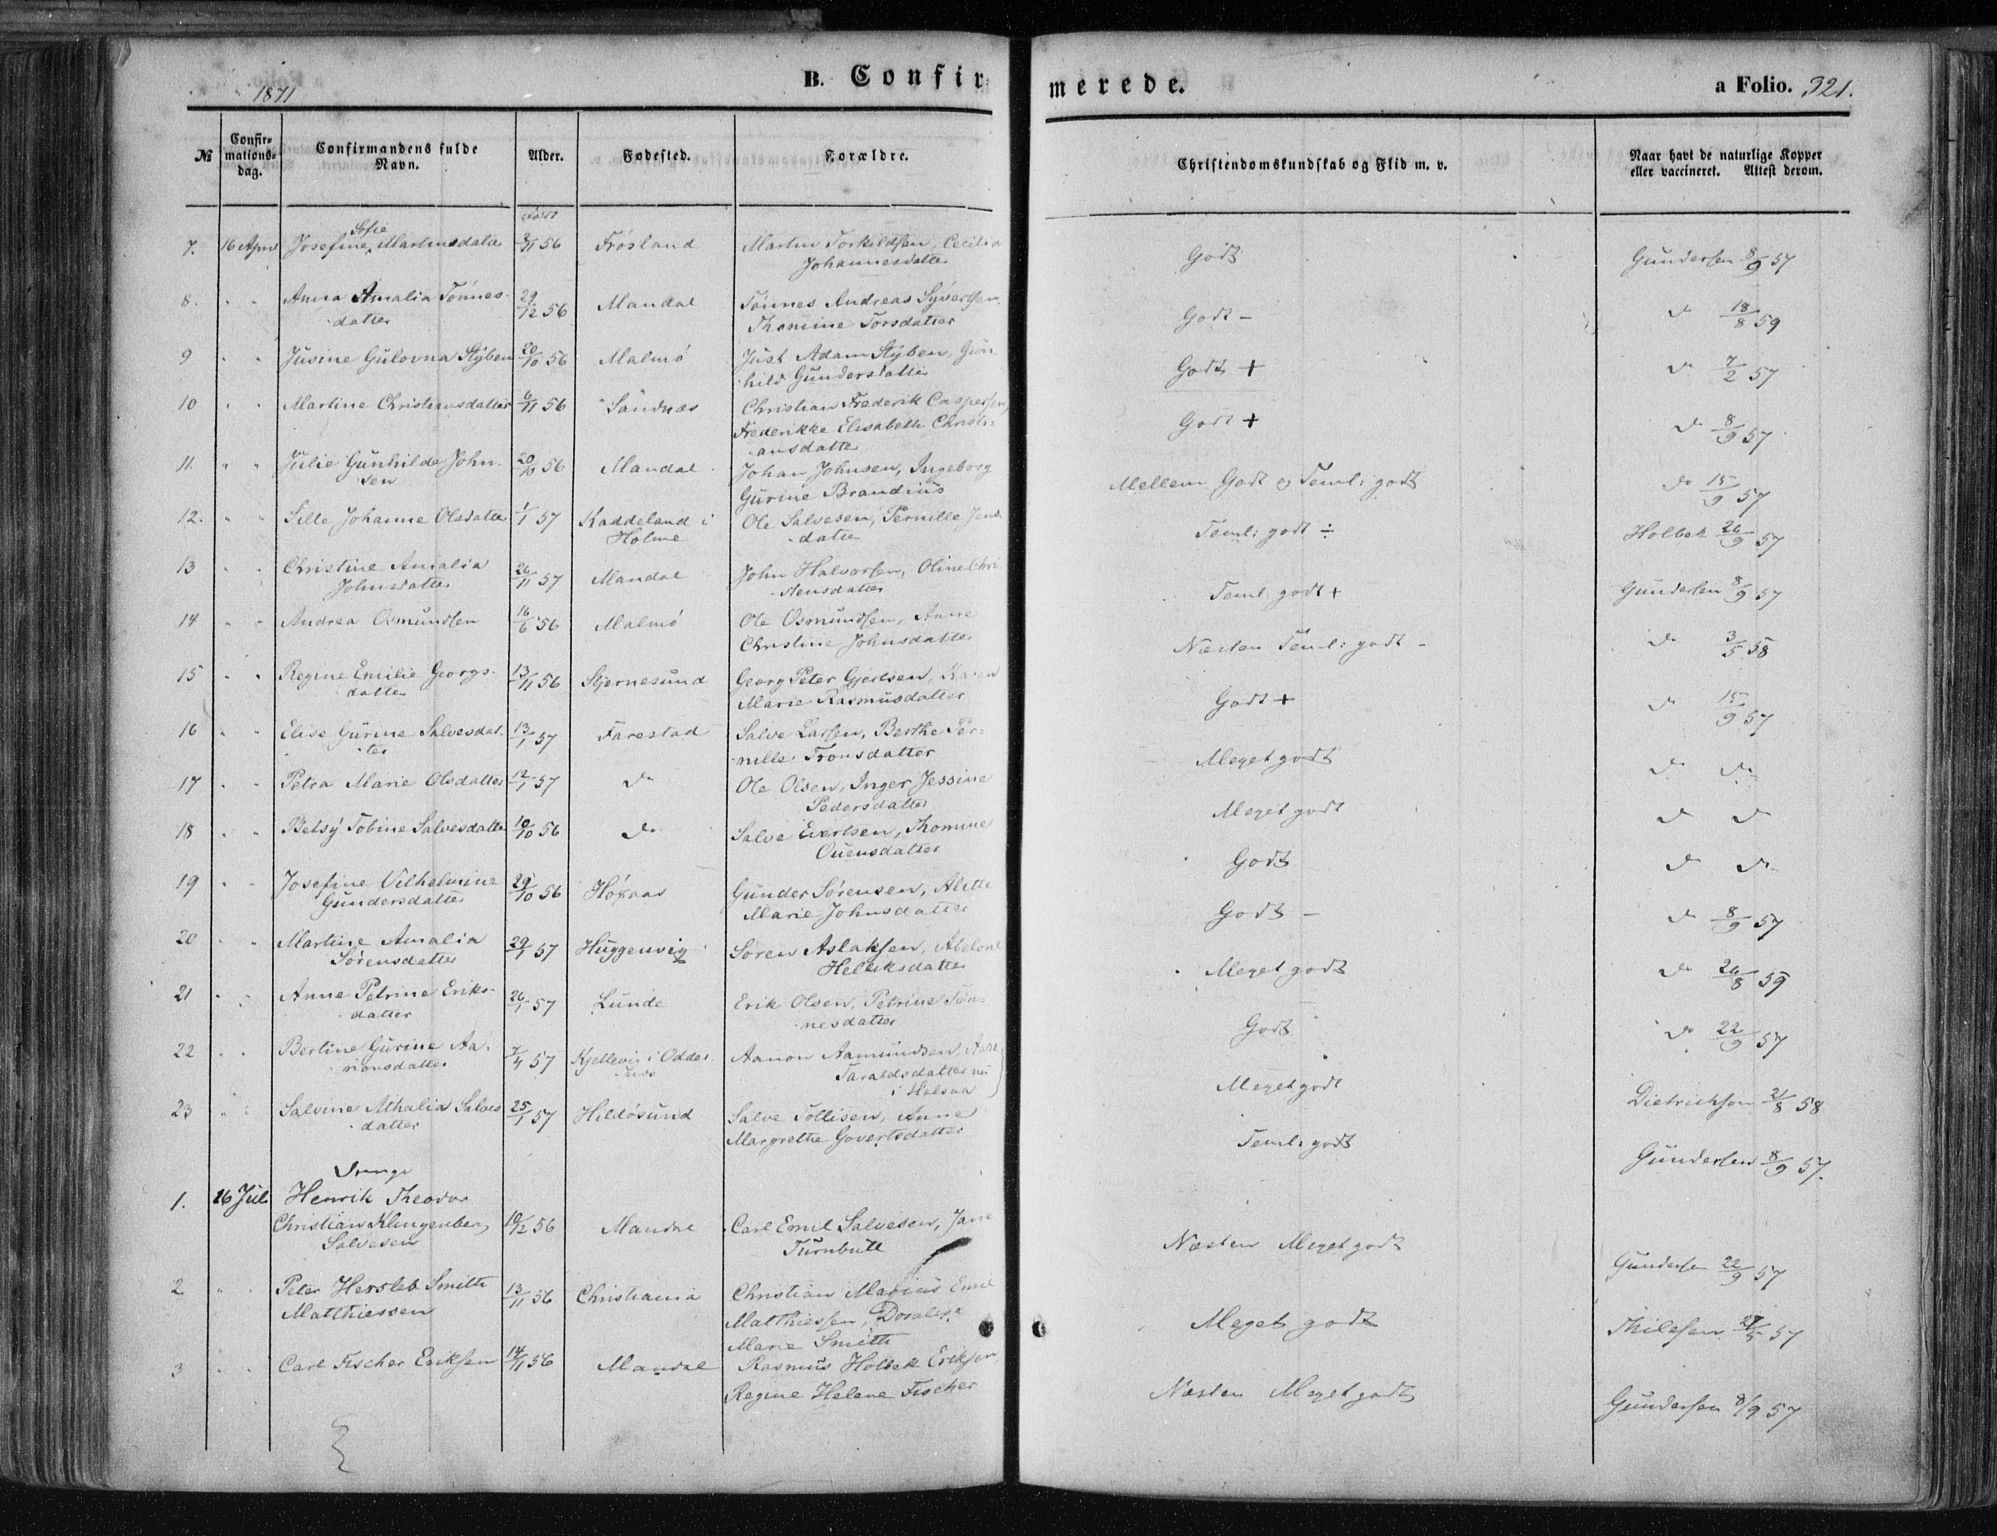 1871
B. Confirmerede.
a Folio. 321.
№ Confirmations-dag. Confirmandens fulde Navn. Alder. Fødested. Forældre. Christendomskundskab og Flid m. v. Naar havt de naturlige Kopper eller vaccineret. Attest derom.
født
Sofie
7. 16 April Josefine Martinsdatter 2/11 56 Frøsland Martin Torkildsen, Cecilia Godt Gundersen 8/9 57
Johannesdatter
8. " " Anna Amalia Tönnes- 29/12 56 Mandal Tönnes Andreas Syvertsen, Godt - do 18/8 59
datter Thomine Torsdatter
9 " " Jusine Gulovna Styben 20/10 56 Malmø Just Adam Styben, Gun- Godt + do 7/2 57
hild Gundersdatter
10 " " Martine Christiansdatter 6/11 56 Sandnæs Christian Frederik Caspersen, Godt + do 8/9 57
Frederikke Elisabeth Christi-
ansdatter
11. " " Julie Gunhilde John- 20/10 56 Mandal Johan Johnsen, Ingeborg Mellem Godt og Teml: godt do 15/9 57
sen Gurine Brandius
12. " " Sille Johanne Olsdatter 1/1 57 Kaddeland i Ole Salvesen, Pernille Jens- Teml: godt ÷ Holbek 26/9 57
Holme datter
13 " " Christine Amalia 26/11 57 Mandal John Halvorsen, Oline Chri- Teml: godt + Gundersen 8/9 57
Johnsdatter stensdatter
14 " " Andrea Osmundsen 16/6 56 Malmø Ole Osmundsen, Anne Næsten Teml: godt - do 3/5 58
Christine Johnsdatter
15 " " Regine Emilie Georgs- 13/11 56 Stjernesund Georg Peter Gjertsen, Karen Godt + do 15/9 57
datter Marie Rasmusdatter
16 " " Elise Gurine Salvesdat- 13/1 57 Farestad Salve Larsen, Berthe Per- Meget godt do do
ter nille Tronsdatter
17 " " Petra Marie Olsdatter 12/1 57 do Ole Olsen, Inger Jessine Meget godt do do
Pedersdatter
18 " " Betsy Tobine Salvesdatter 10/10 56 do Salve Evertsen, Thomine Godt do do
Ouensdatter
19 " " Josefine Vilhelmine 29/10 56 Høxaas Gunder Sørensen, Alette Godt - do 8/9 57
Gundersdatter Marie Johnsdatter
20 " " Martine Amalia 29/1 57 Huggenvig Søren Aslaksen, Abelone Meget godt do 26/8 59
Sørensdatter Helleksdatter
21 " " Anne Petrine Eriks- 26/1 57 Lunde Erik Olsen, Petrine Tön- Godt do 22/9 57
datter nesdatter
22 " " Bertine Gurine Aa- 7/4 57 Kjellevig i Odder- Aanon Aamundsen, Aase Meget godt Dietrichson 2/8 58
nonsdatter næs Taraldsdatter nu
i Holsaa
23 " " Salvine Athalia Salves- 25/1 57 Hildøsund Salve Tollisen, Anne Teml: godt Gundersen 8/9 57.
datter Margrethe Govertsdatter
Drenge
1. 16 Juli Henrik Theodor
Christian Klingenberg 10/12 56 Mandal Carl Emil Salvesen, Jane Næsten Meget godt Gundersen 22/9 57
Salvesen Turnbull
2 " " Peter Hersleb Smith 13/11 56 Christiania Christian Marius Emil Meget godt Thilesen 27/5 57
Matthiessen Matthiessen, Dorthea
Marie Smith
3 " " Carl Fischer Eriksen 14/1 56 Mandal Rasmus Holbek Eriksen, Næsten Meget godt Gundersen 8/9 57
Regine Helene Fischer